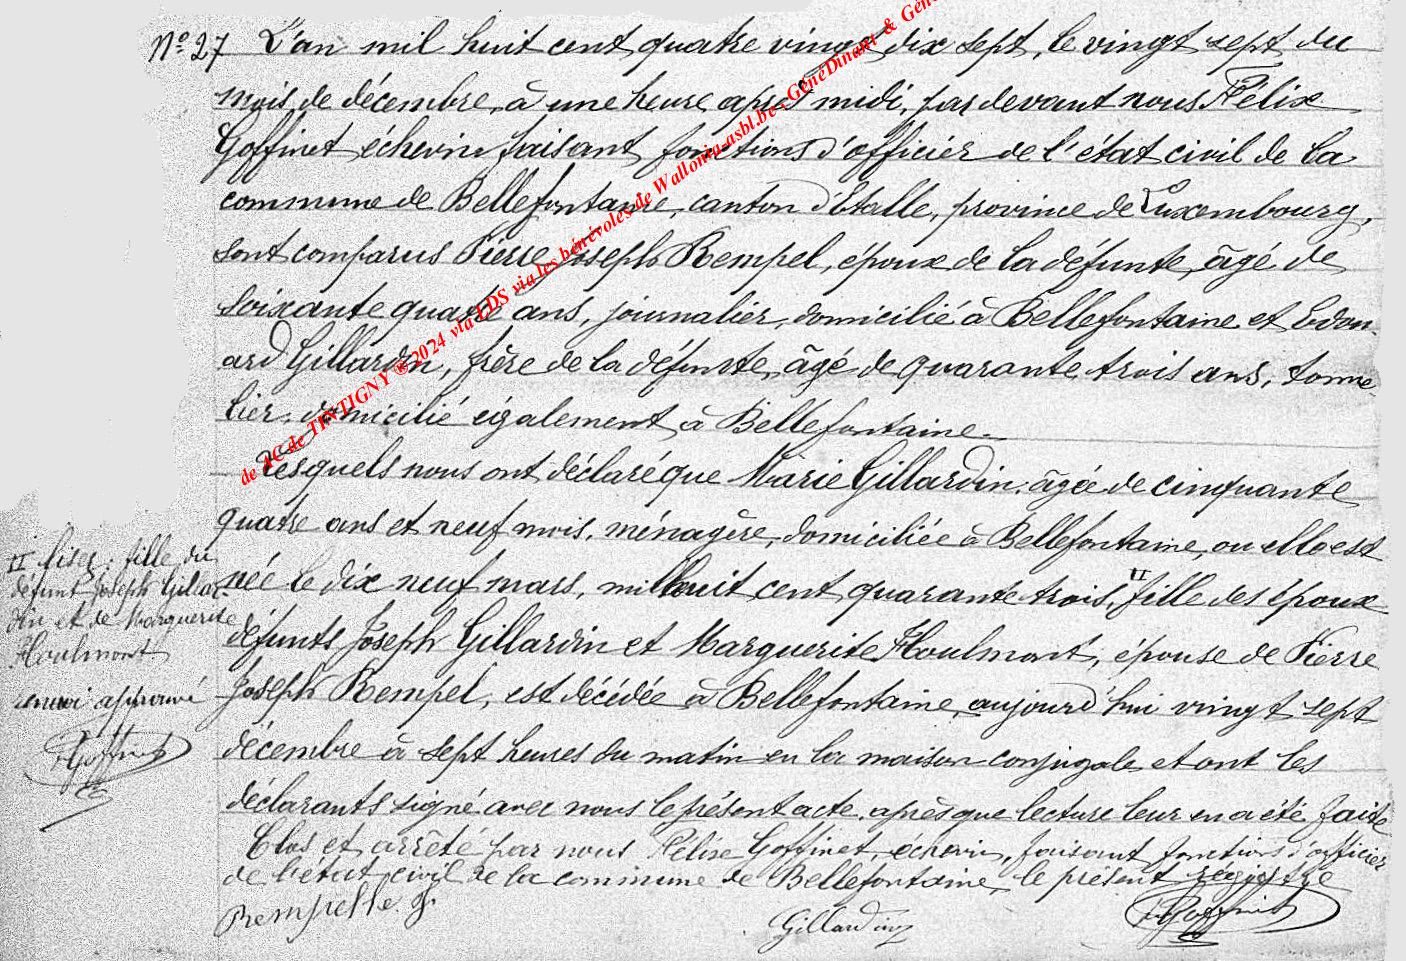 N° 27 L'an mil huit cent quatre vingt dix sept, le vingt sept du
mois de décembre, à une heure après midi, par devant nous Félix
Goffinet échevin faisant fonctions d'officier de l'état civil de la
commune de Bellefontaine, canton d'Etalle, province de Luxembourg,
sont comparus Pierre Joseph Rempel, époux de la défunte, âgé de
soixante quatre ans, journalier, domicilié à Bellefontaine et Edou-
ard Gillardin, frère de la défunte, âgé de quarante trois ans, tonne
lier, domicilié également à Bellefontaine.
Lesquels nous ont déclaré que Marie Gillardin, âgée de cinquante
quatre ans et neuf mois, ménagère, domiciliée à Bellefontaine, ou elle est
née le dix neuf mars, mil huit cent quarante trois, II fille des époux
défunts Joseph Gillardin et Marguerite Houlmont, épouse de Pierre
Joseph Rempel, est décédée à Bellefontaine, aujourd'hui vingt sept
décembre à sept heures du matin en la maison conjugale et ont les
déclarants signé avec nous le présent acte, après que lecture leur en a été faite
Clos et arrêté par nous Félix Goffinet, échevin, faisant fonctions d'officier
de l'état civil de la commune de Bellefontaine, le présent registre
Rempelle J.
Gillardin
F Goffinet
II lisez : fille du
défunt Joseph Gillar-
din et de Marguerite
Houlmont.
renvoi approuvé
F Goffinet
de AC de TINTIGNY ® 2024 via LDS via les bénévoles de Wallonia-asbl.be - GénéDinant & Géné